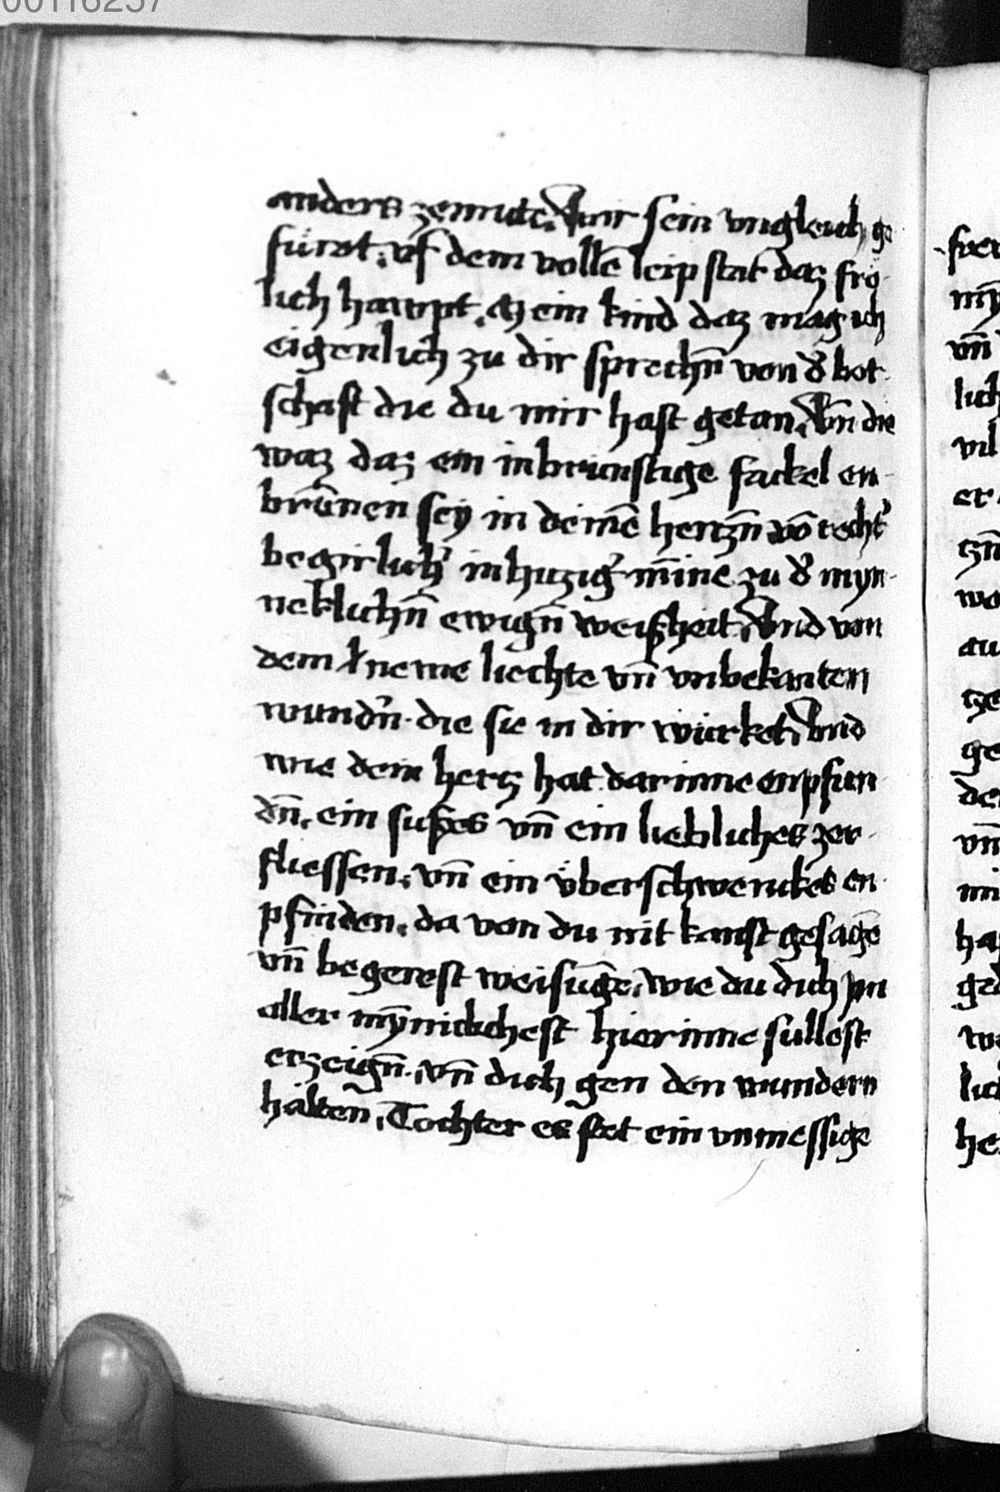 00116257
anders zemute. Wir sein vngleich ge
fürot. vf dem vollē leip stat daz frö
lich hawpt. Mein kind daz mag ich
eigenlich zu dir sprechn̄ von d' bot
schaft die du mir hast getan. Vn̄ die
waz daz ein inbrünstige fackel en
brūnen sey in deinē hertzn̄ vō recht'
begirlich' inhiczig' mīne zu d' myn
neklichn̄ ewign̄ weiszheit. Vnd von
dem newe liechte vn̄ vnbekanten
wundn̄. die sie in dir würket. Vnd
wie dein hertz hat darinne enpfun
dn̄. ein süszes vn̄ ein liebliches zer
fliessen. vn̄ ein v̈berschwenckes en
pfinden. da von du nit kanst gesagē
vn̄ begerest weisūge. wie du dich jm
aller mȳnickchest hierinne süllest
erzeign̄. vn̄ dich gen den wundern
halten. Tochter es stet ein vnmessige
mȳ
vn̄
lich
vil
er
tzn̄
wo
au
tze
ge
der
vn̄
mi
ha
ged
we
lich
her